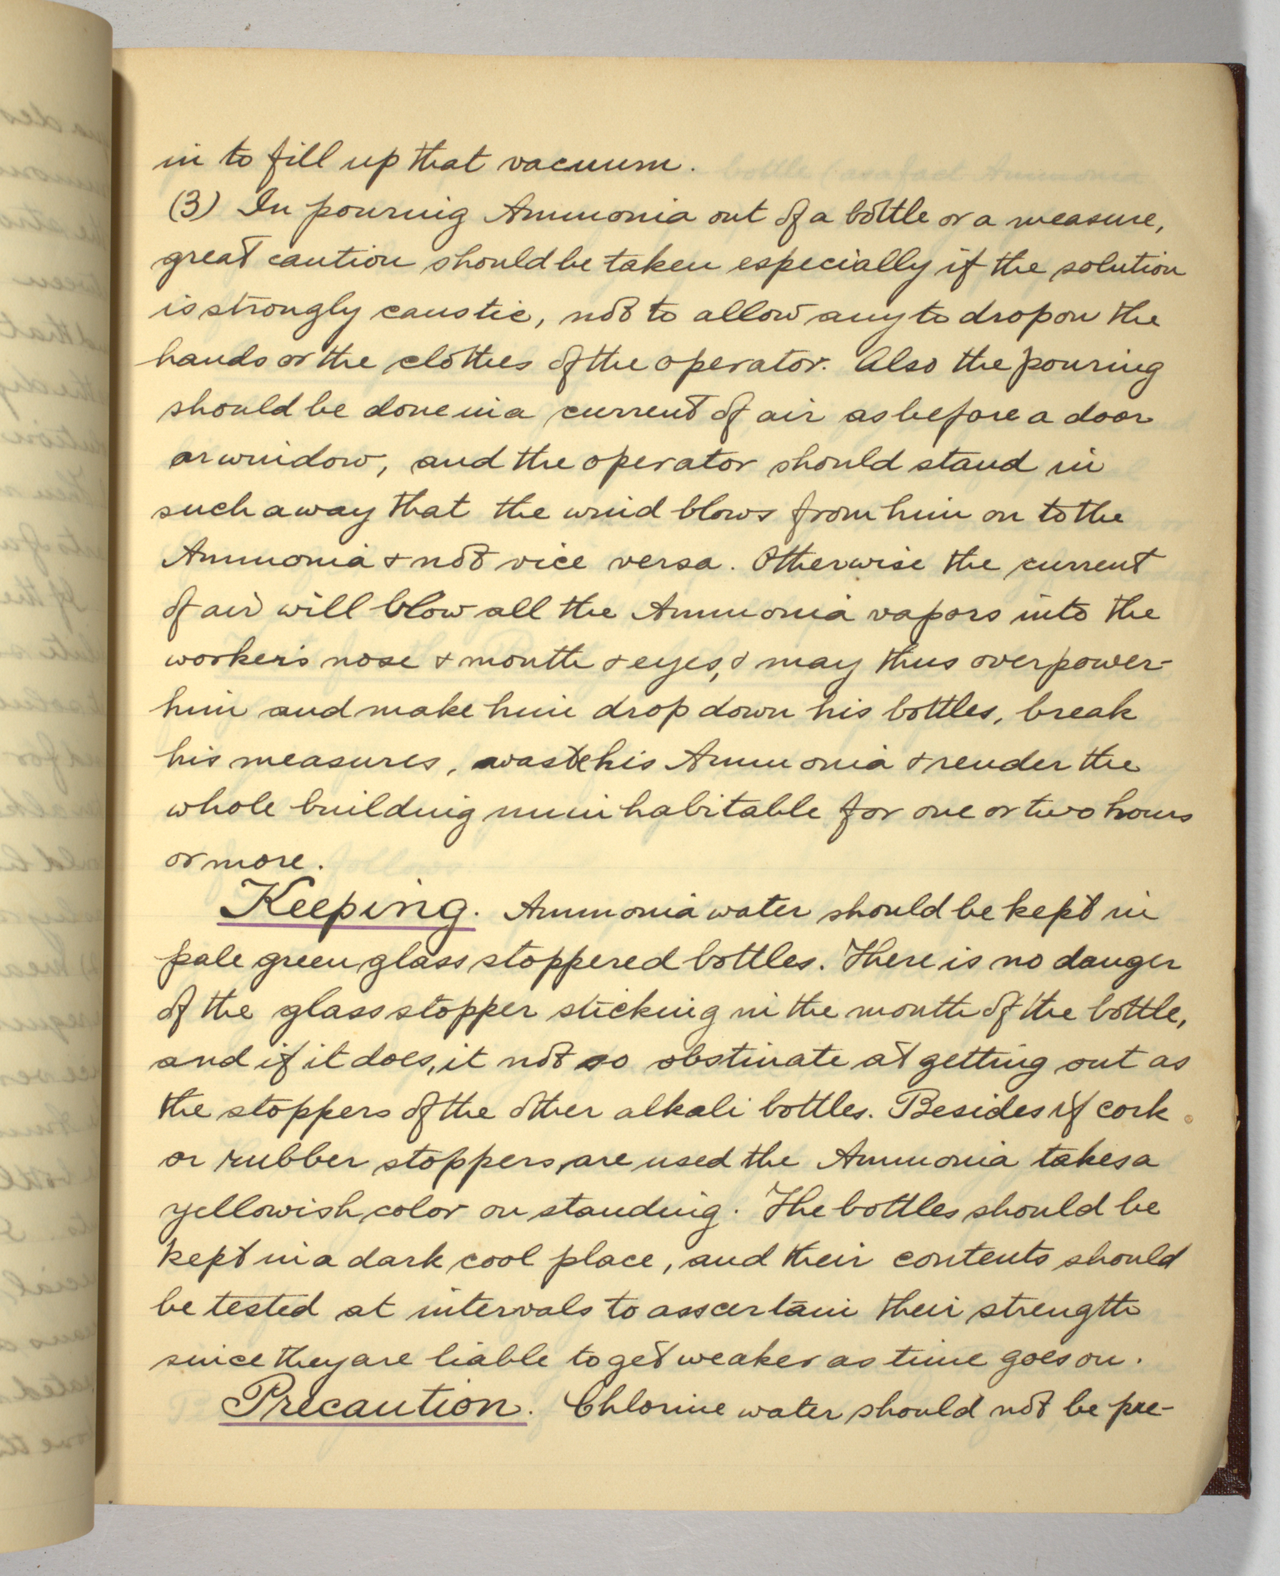 in to fill up that vacuum.
(3) In pouring Ammonia out of a bottle or a measure,
great caution should be taken especially if the solution
is strongly caustic, not to allow any to drop on the
hands or the clothes of the operator. Also the pouring
should be done in a current of air as before a door
or window, and the operator should stand in
such a way that the wind blows from him on to the
Ammonia & not vice versa. Otherwise the current
of air will blow all the Ammonia vapors into the
worker's nose & mouth & eyes, & may thus overpower
him and make him drop down his bottles, break
his measures, waste his Ammonia & render the
whole building uninhabitable for one or two hours
or more.
Keeping. Ammonia water should be kept in
pale green glass stoppered bottles. There is no danger
of the glass stopper sticking in the mouth of the bottle,
and if it does, it not so obstinate at getting out as
the stoppers of the other alkali bottles. Besides if cork
or rubber stoppers are used the Ammonia takes a
yellowish color on standing. The bottles should be
kept in a dark cool place, and their contents should
be tested at intervals to asscertain their strength
since they are liable to get weaker as time goes on.
Precaution. Chlorine water should not be pre-